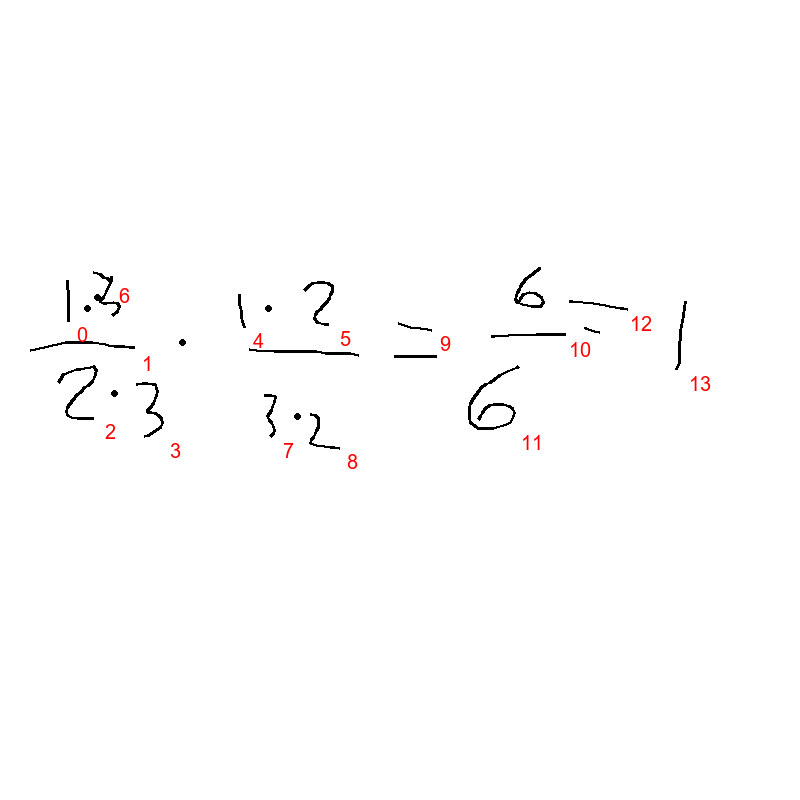 \frac{1 \cdot 3}{2 \cdot 3} \cdot \frac{1 \cdot 2}{3 \cdot 2} = \frac{6}{6} = 1
0 1 2 3 4 5 6 7 8 9 10 11 12 13